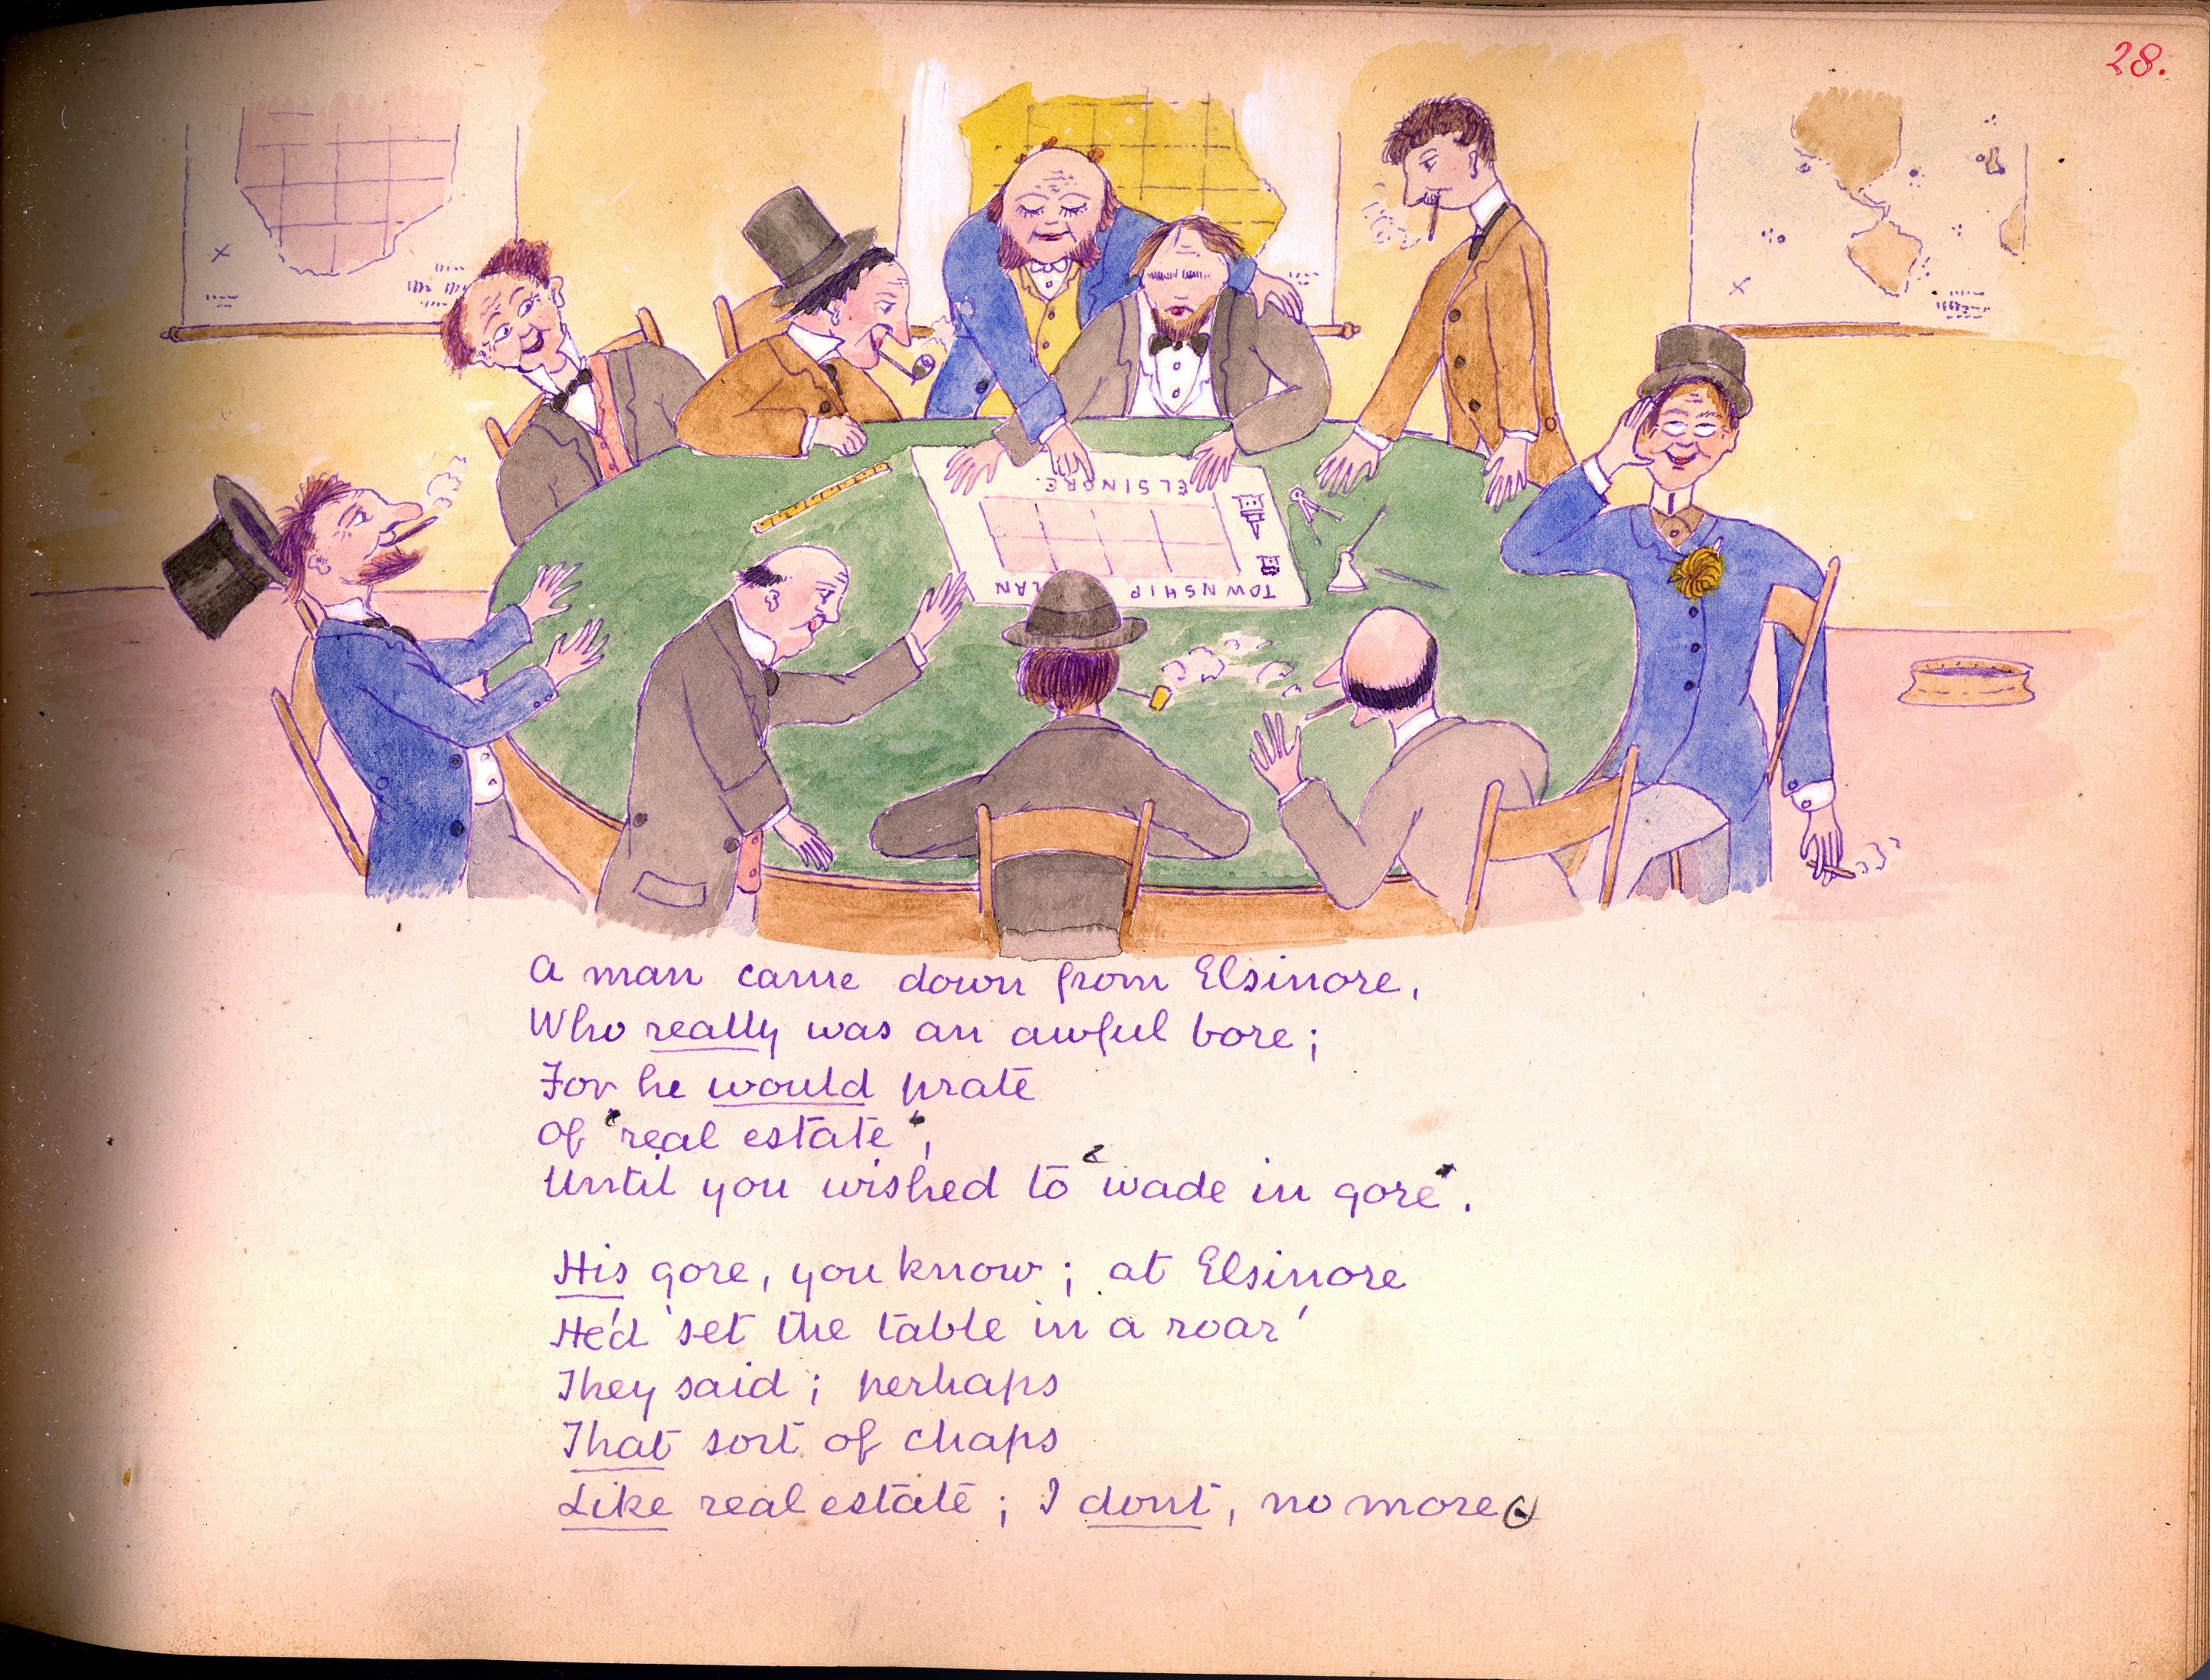 28.
ELSINORE.
TOWNSHIP PLAN
A man came down from Elsinore,
Who really was an awful bore;
For he would prate
Of "real estate",
Until you wished to "wade in gore".
His gore, you know; at Elsinore
He'd 'set the table in a roar'
They said; perhaps
That sort of chaps
Like real estate; I dont, no more.